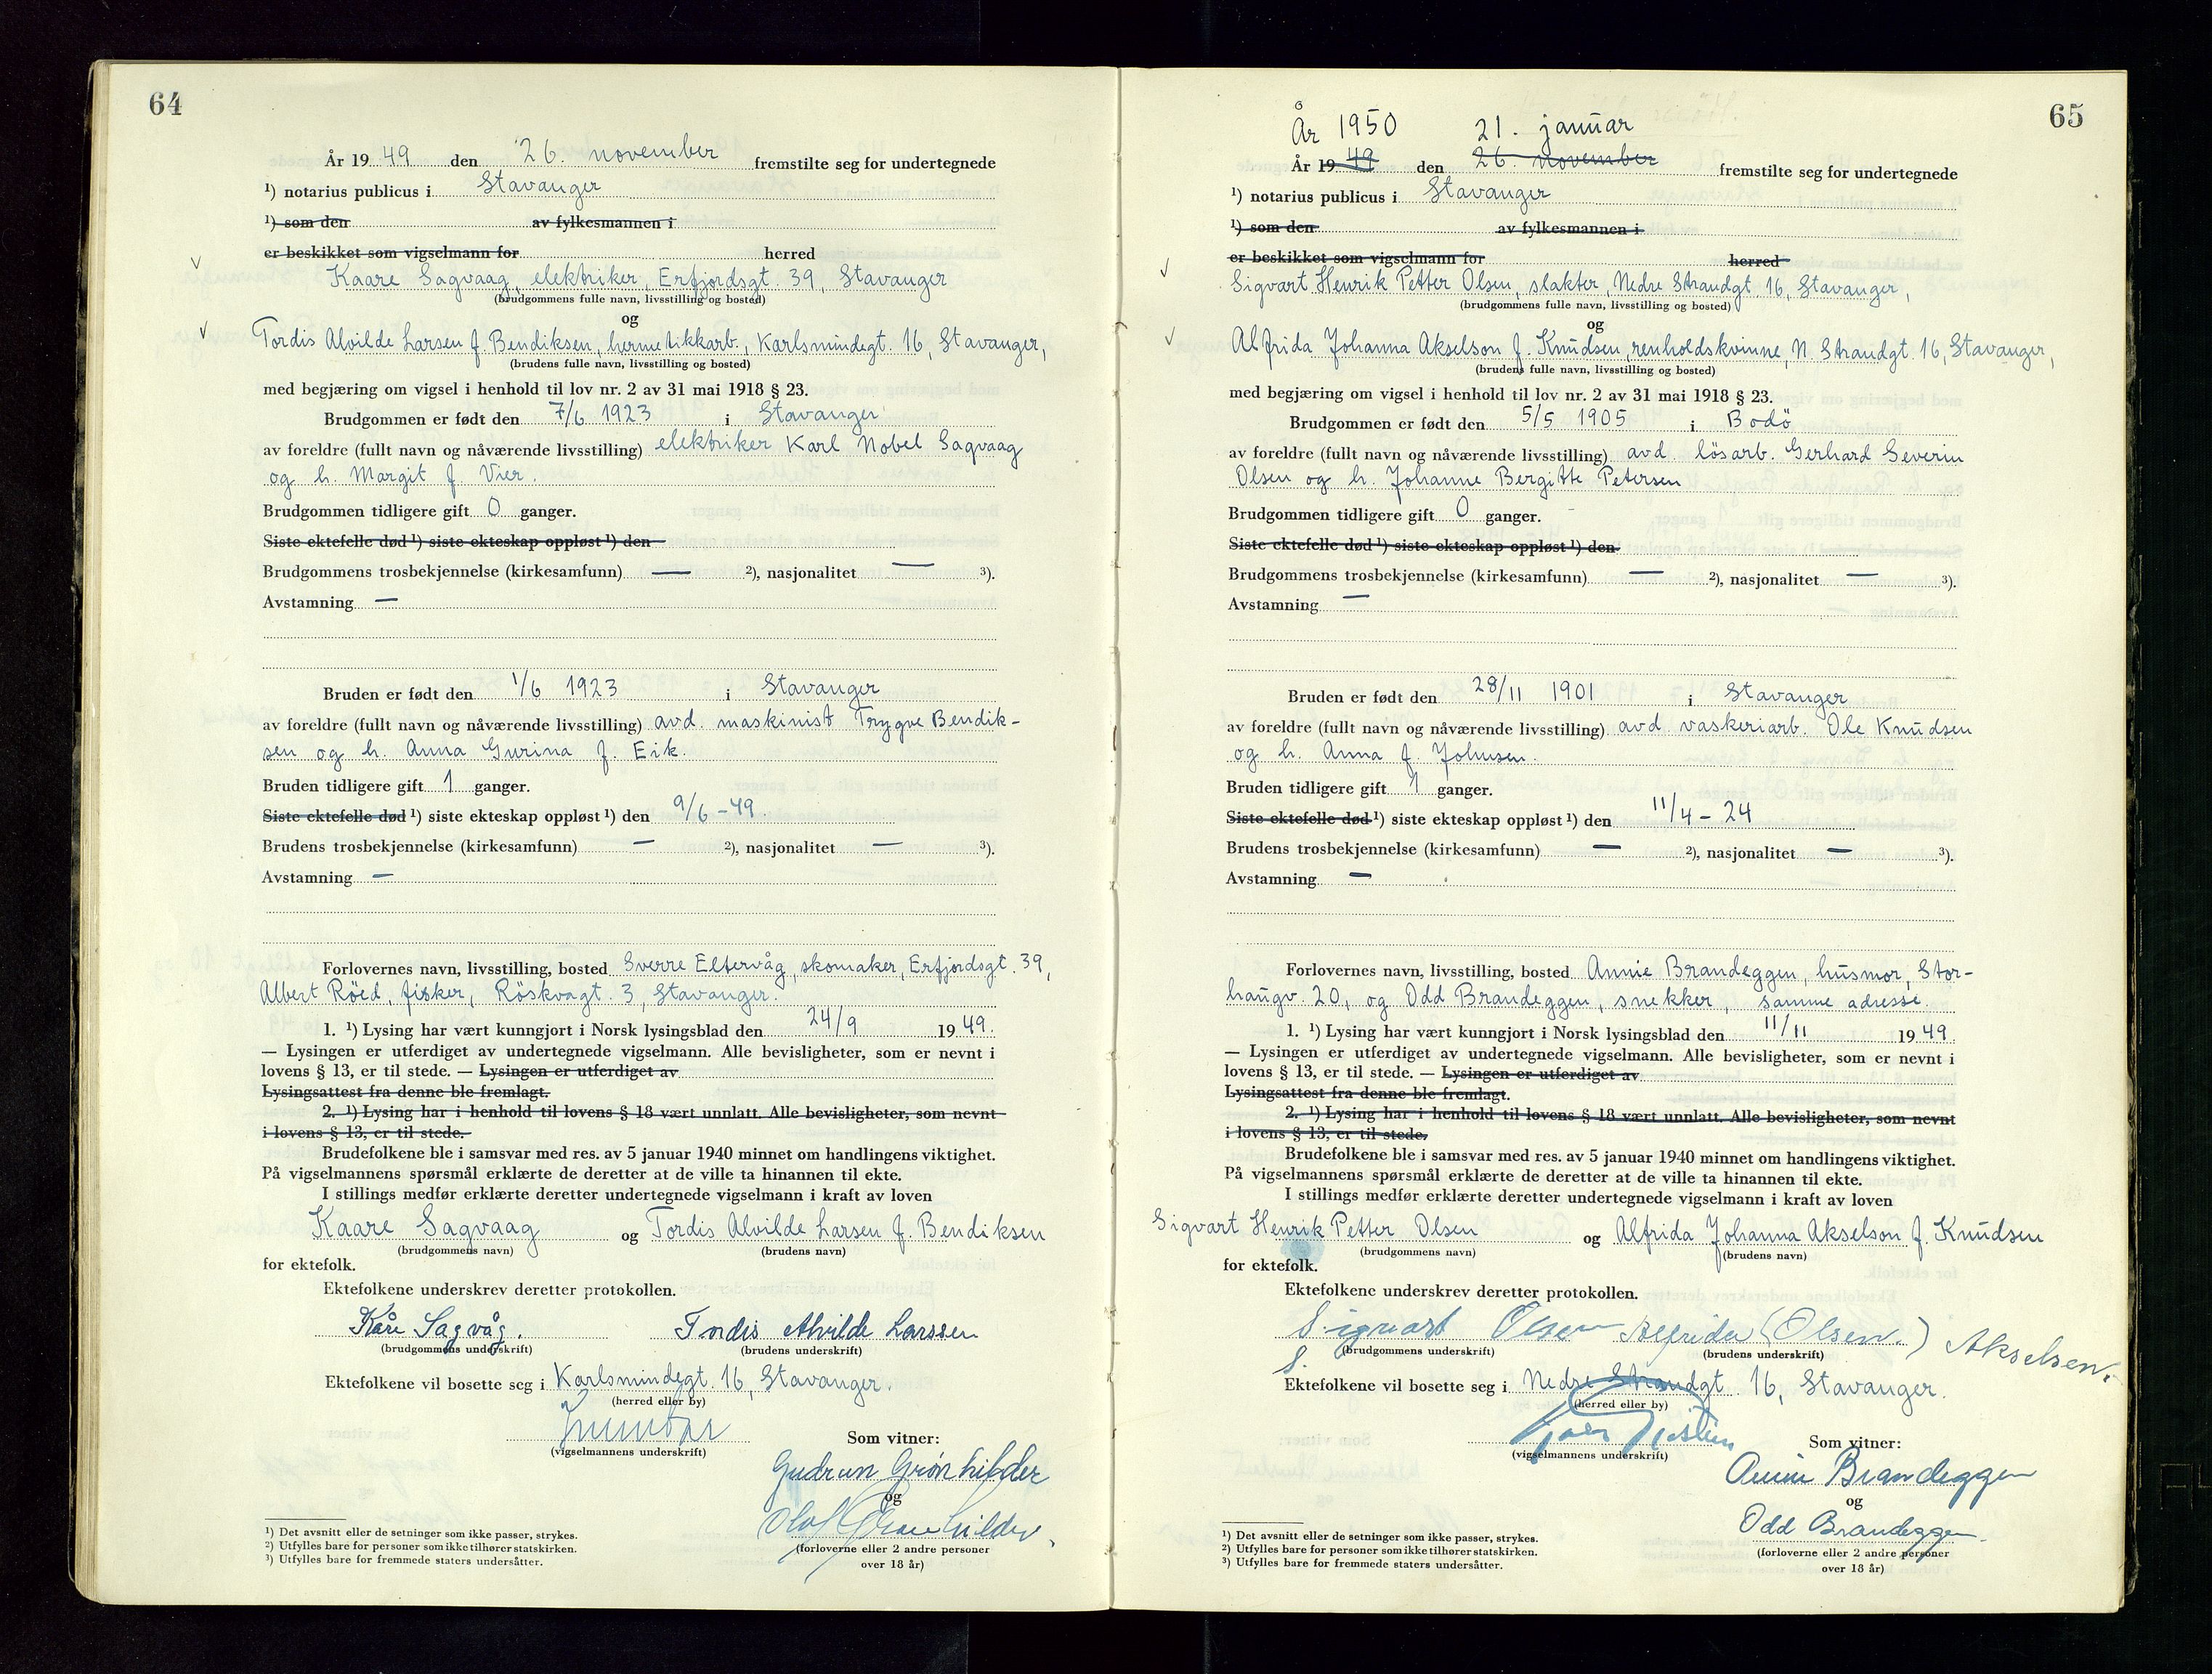 64
År 19 49 den 26. november fremstilte seg for undertegnede
¹) notarius publicus i Stavanger
¹) som den av fylkesmannen i
er beskikket som vigselmann for herred
Kaare Sagvaag, elektriker, Erfjordsgt. 39, Stavanger
(brudgommens fulle navn, livsstilling og bosted)
og
Tordis Alvilde Larsen f. Bendiksen, hermetikkarb., Karlsmindegt. 16, Stavanger,
(brudens fulle navn, livsstilling og bosted)
med begjæring om vigsel i henhold til lov nr. 2 av 31 mai 1918 § 23.
Brudgommen er født den 7/6 1923 i Stavanger
av foreldre (fullt navn og nåværende livsstilling) elektriker Karl Nobel Sagvaag
og h. Margit f. Vier.
Brudgommen tidligere gift 0 ganger.
Siste ektefelle død ¹) siste ekteskap oppløst ¹) den
Brudgommens trosbekjennelse (kirkesamfunn) — ²), nasjonalitet — ³).
Avstamning —
Bruden er født den 1/6 1923 i Stavanger
av foreldre (fullt navn og nåværende livsstilling) avd. maskinist Trygve Bendik-
sen og h. Anna Gurina f. Eik.
Bruden tidligere gift 1 ganger.
Siste ektefelle død ¹) siste ekteskap oppløst ¹) den 9/6 -49.
Brudens trosbekjennelse (kirkesamfunn) — ²), nasjonalitet — ³).
Avstamning —
Forlovernes navn, livsstilling, bosted Sverre Eltervåg, skomaker, Erfjordsgt. 39,
Albert Röed, fisker, Röskvagt. 3, Stavanger.
1. ¹) Lysing har vært kunngjort i Norsk lysingsblad den 24/9 19 49.
— Lysingen er utferdiget av undertegnede vigselmann. Alle bevisligheter, som er nevnt i
lovens § 13, er til stede. — Lysingen er utferdiget av
Lysingsattest fra denne ble fremlagt.
2. ¹) Lysing har i henhold til lovens § 18 vært unnlatt. Alle bevisligheter, som nevnt
i lovens § 13, er til stede.
Brudefolkene ble i samsvar med res. av 5 januar 1940 minnet om handlingens viktighet.
På vigselmannens spørsmål erklærte de deretter at de ville ta hinannen til ekte.
I stillings medfør erklærte deretter undertegnede vigselmann i kraft av loven
Kaare Sagvaag og Tordis Alvilde Larsen f. Bendiksen
(brudgommens navn) (brudens navn)
for ektefolk.
Ektefolkene underskrev deretter protokollen.
Kåre Sagvåg. Tordis Alvilde Larssen
(brudgommens underskrift) (brudens underskrift)
Ektefolkene vil bosette seg i Karlsmindegt. 16, Stavanger.
(herred eller by)
(vigselmannens underskrift)
Som vitner:
Gudrun Grønhilder
og
Olaf Grønhilder.
(forloverne eller 2 andre personer
over 18 år)
¹) Det avsnitt eller de setninger som ikke passer, strykes.
²) Utfylles bare for personer som ikke tilhører statskirken.
³) Utfylles bare for fremmede staters undersåtter.
65
År 1950 21. januar
År 19 49 den 26. november fremstilte seg for undertegnede
¹) notarius publicus i Stavanger
¹) som den av fylkesmannen i
er beskikket som vigselmann for herred
Sigvart Henrik Petter Olsen, slakter, Nedre Strandgt. 16, Stavanger,
(brudgommens fulle navn, livsstilling og bosted)
og
Alfrida Johanna Akselson f. Knudsen, renholdskvinne, N. Strandgt. 16, Stavanger,
(brudens fulle navn, livsstilling og bosted)
med begjæring om vigsel i henhold til lov nr. 2 av 31 mai 1918 § 23.
Brudgommen er født den 5/5 1905 i Bodö
av foreldre (fullt navn og nåværende livsstilling) avd. lösarb. Gerhard Severin
Olsen og h. Johanne Bergitte Petersen
Brudgommen tidligere gift 0 ganger.
Siste ektefelle død ¹) siste ekteskap oppløst ¹) den.
Brudgommens trosbekjennelse (kirkesamfunn) — ²), nasjonalitet — ³).
Avstamning —
Bruden er født den 28/11 1901 i Stavanger
av foreldre (fullt navn og nåværende livsstilling) avd vaskeriarb. Ole Knudsen
og h. Anna f. Johnsen.
Bruden tidligere gift 1 ganger.
Siste ektefelle død ¹) siste ekteskap oppløst ¹) den 11/4 - 24
Brudens trosbekjennelse (kirkesamfunn) — ²), nasjonalitet — ³).
Avstamning —
Forlovernes navn, livsstilling, bosted Annie Brandeggen, husmor, Stor-
haugv. 20, og Odd Brandeggen, snekker, samme adresse.
1. ¹) Lysing har vært kunngjort i Norsk lysingsblad den 11/11 19 49.
— Lysingen er utferdiget av undertegnede vigselmann. Alle bevisligheter, som er nevnt i
lovens § 13, er til stede. — Lysingen er utferdiget av
Lysingsattest fra denne ble fremlagt.
2. ¹) Lysing har i henhold til lovens § 18 vært unnlatt. Alle bevisligheter, som nevnt
i lovens § 13, er til stede.
Brudefolkene ble i samsvar med res. av 5 januar 1940 minnet om handlingens viktighet.
På vigselmannens spørsmål erklærte de deretter at de ville ta hinannen til ekte.
I stillings medfør erklærte deretter undertegnede vigselmann i kraft av loven
Sigvart Henrik Petter Olsen og Alfrida Johanna Akselson f. Knudsen
(brudgommens navn) (brudens navn)
for ektefolk.
Ektefolkene underskrev deretter protokollen.
Sigvart Olsen Alfrida (Olsen.) Akselsen.
(brudgommens underskrift) (brudens underskrift)
Ektefolkene vil bosette seg i Nedre Strandgt. 16, Stavanger.
(herred eller by)
(vigselmannens underskrift)
Som vitner:
Annie Brandeggen
og
Odd Brandeggen
(forloverne eller 2 andre personer
over 18 år)
¹) Det avsnitt eller de setninger som ikke passer, strykes.
²) Utfylles bare for personer som ikke tilhører statskirken.
³) Utfylles bare for fremmede staters undersåtter.